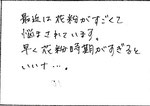 最近は花粉がすごくて
悩まされています。
早く花粉時期がすぎると
いいナ…。